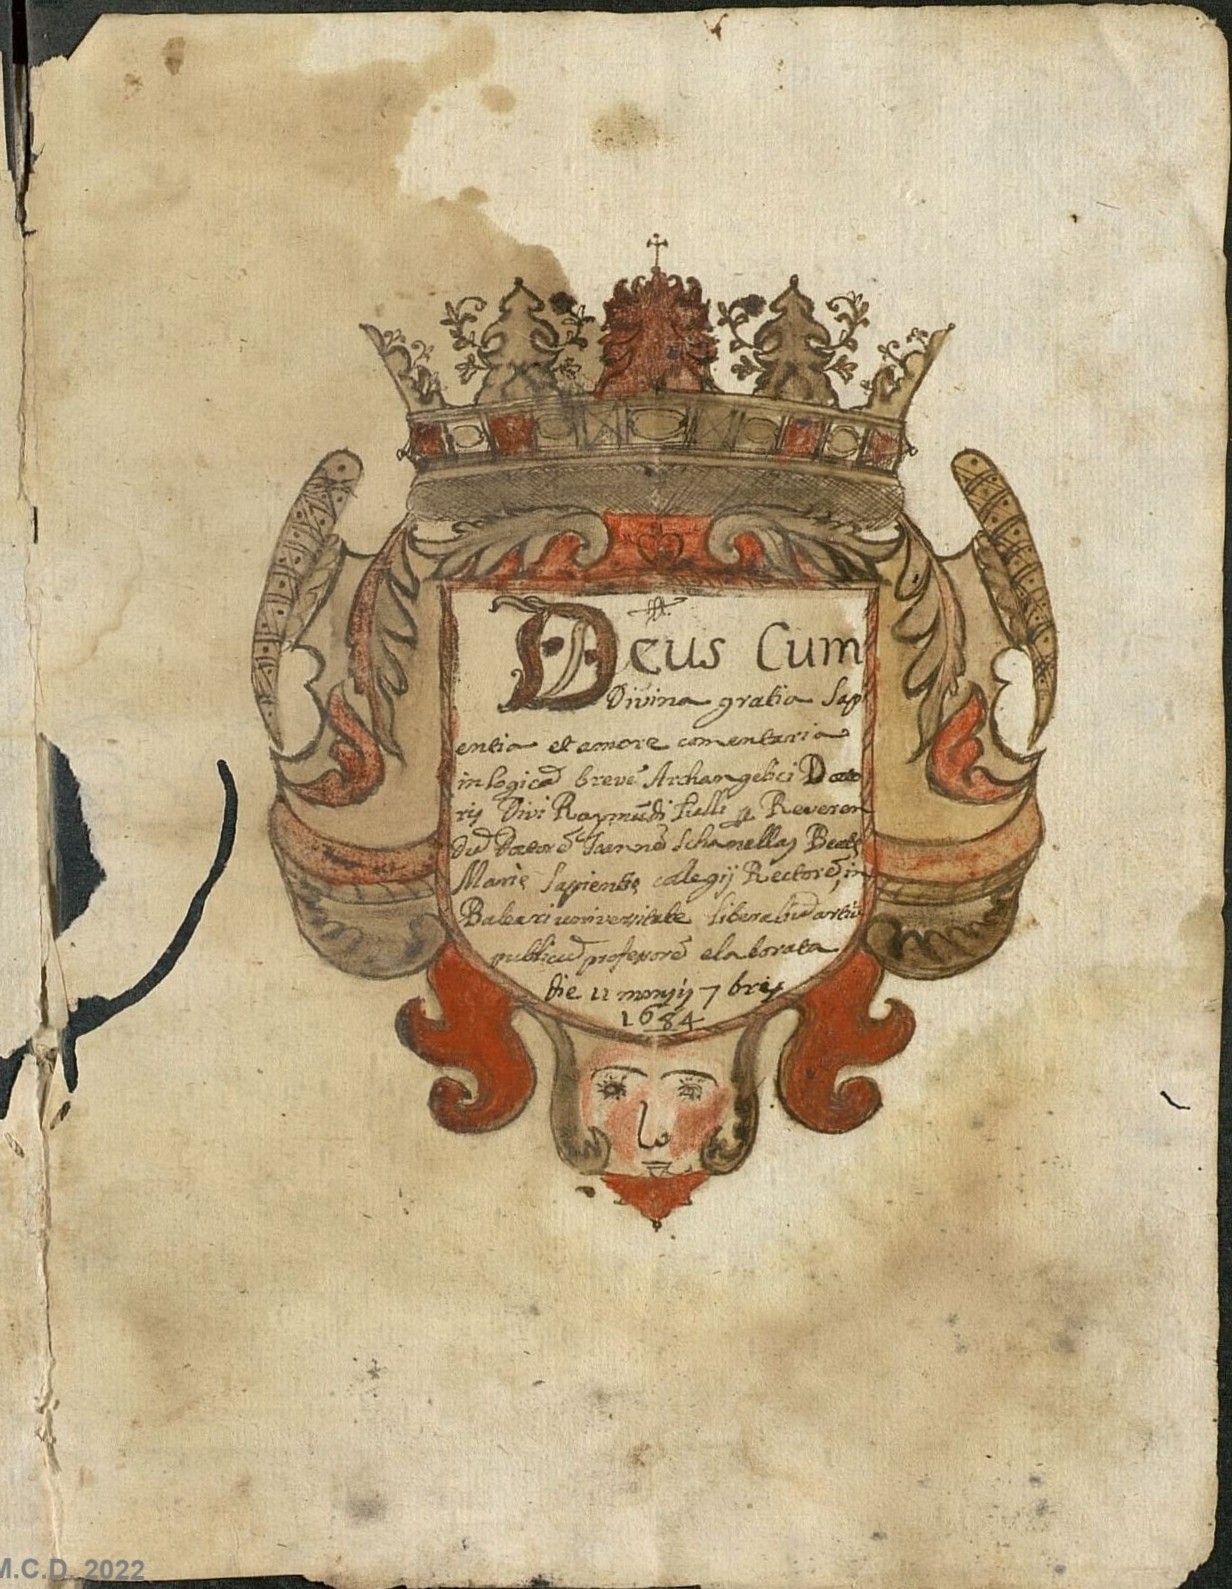 Deus Cum
Divina gratia Sapi
entia et amore comentaria
in logicã brevẽ Archangelici Docto
ris Divi Raymũdi Lulli p Reveren
dũ Doctorẽ Joannẽ Schanellas Beatę
Marię Sapientię colegij Rectorẽ, in
Baleari universitate liberaliũ artiũ
publicũ profesorẽ elaborata
die 11 mensis 7 bris
1684
M.C.D. 2022